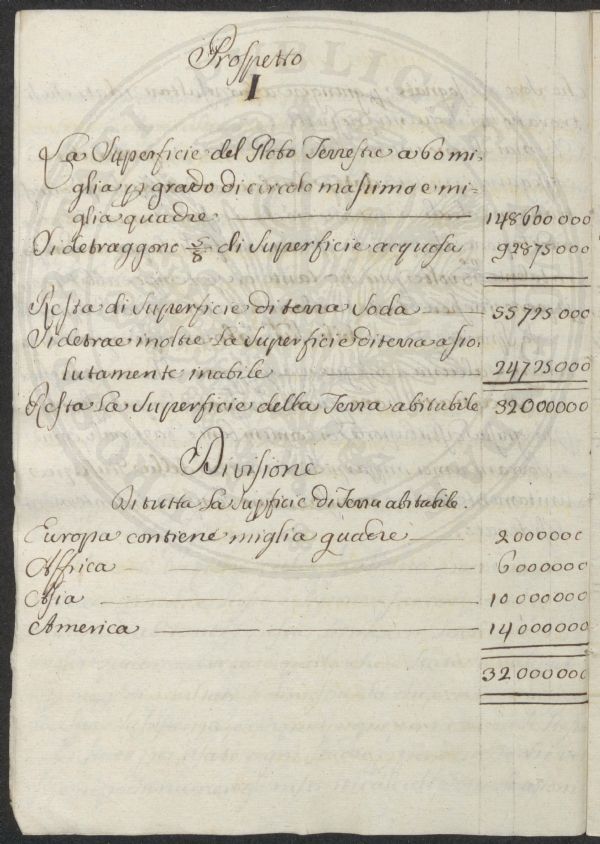 Prospetto
I
La Superficie del Globo Terrestre a 60 mi=
glia p grado di circolo massimo e mi=
glia quadre 148600000
Si detraggono 5/8 di Superficie acquosa 92875000
Resta di Superficie di terra Soda 55725000
Si detrae inoltre la Superficie di terra asso=
lutamente inabile 24725000
Resta la Superficie della Terra abitabile 32000000
Divisione
Di tutta la Supficie di Terra abitabile.
Europa contiene miglia quadre 2000000
Affrica 6000000
Asia 10000000
America 14000000
32000000